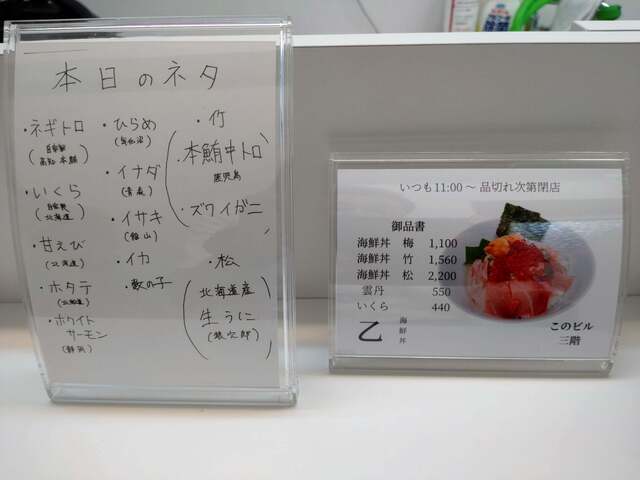 本日のネタ
・ネギトロ
(自家製
高知 本鮪)
・いくら
(自家製
北海道)
・甘えび
(北海道)
・ホタテ
(北海道)
・ホワイト
サーモン
・ひらめ
(気仙沼)
・イナダ
(青森)
・イサキ
(館山)
・イカ
・数の子
・竹
・本鮪中トロ
鹿児島
・ズワイガニ
・松
北海道産
生うに
いつも11:00～ 品切れ次第閉店
御品書
海鮮丼 梅 1,100
海鮮丼 竹 1,560
海鮮丼 松 2,200
雲丹 550
いくら 440
乙 海鮮丼
このビル
三階